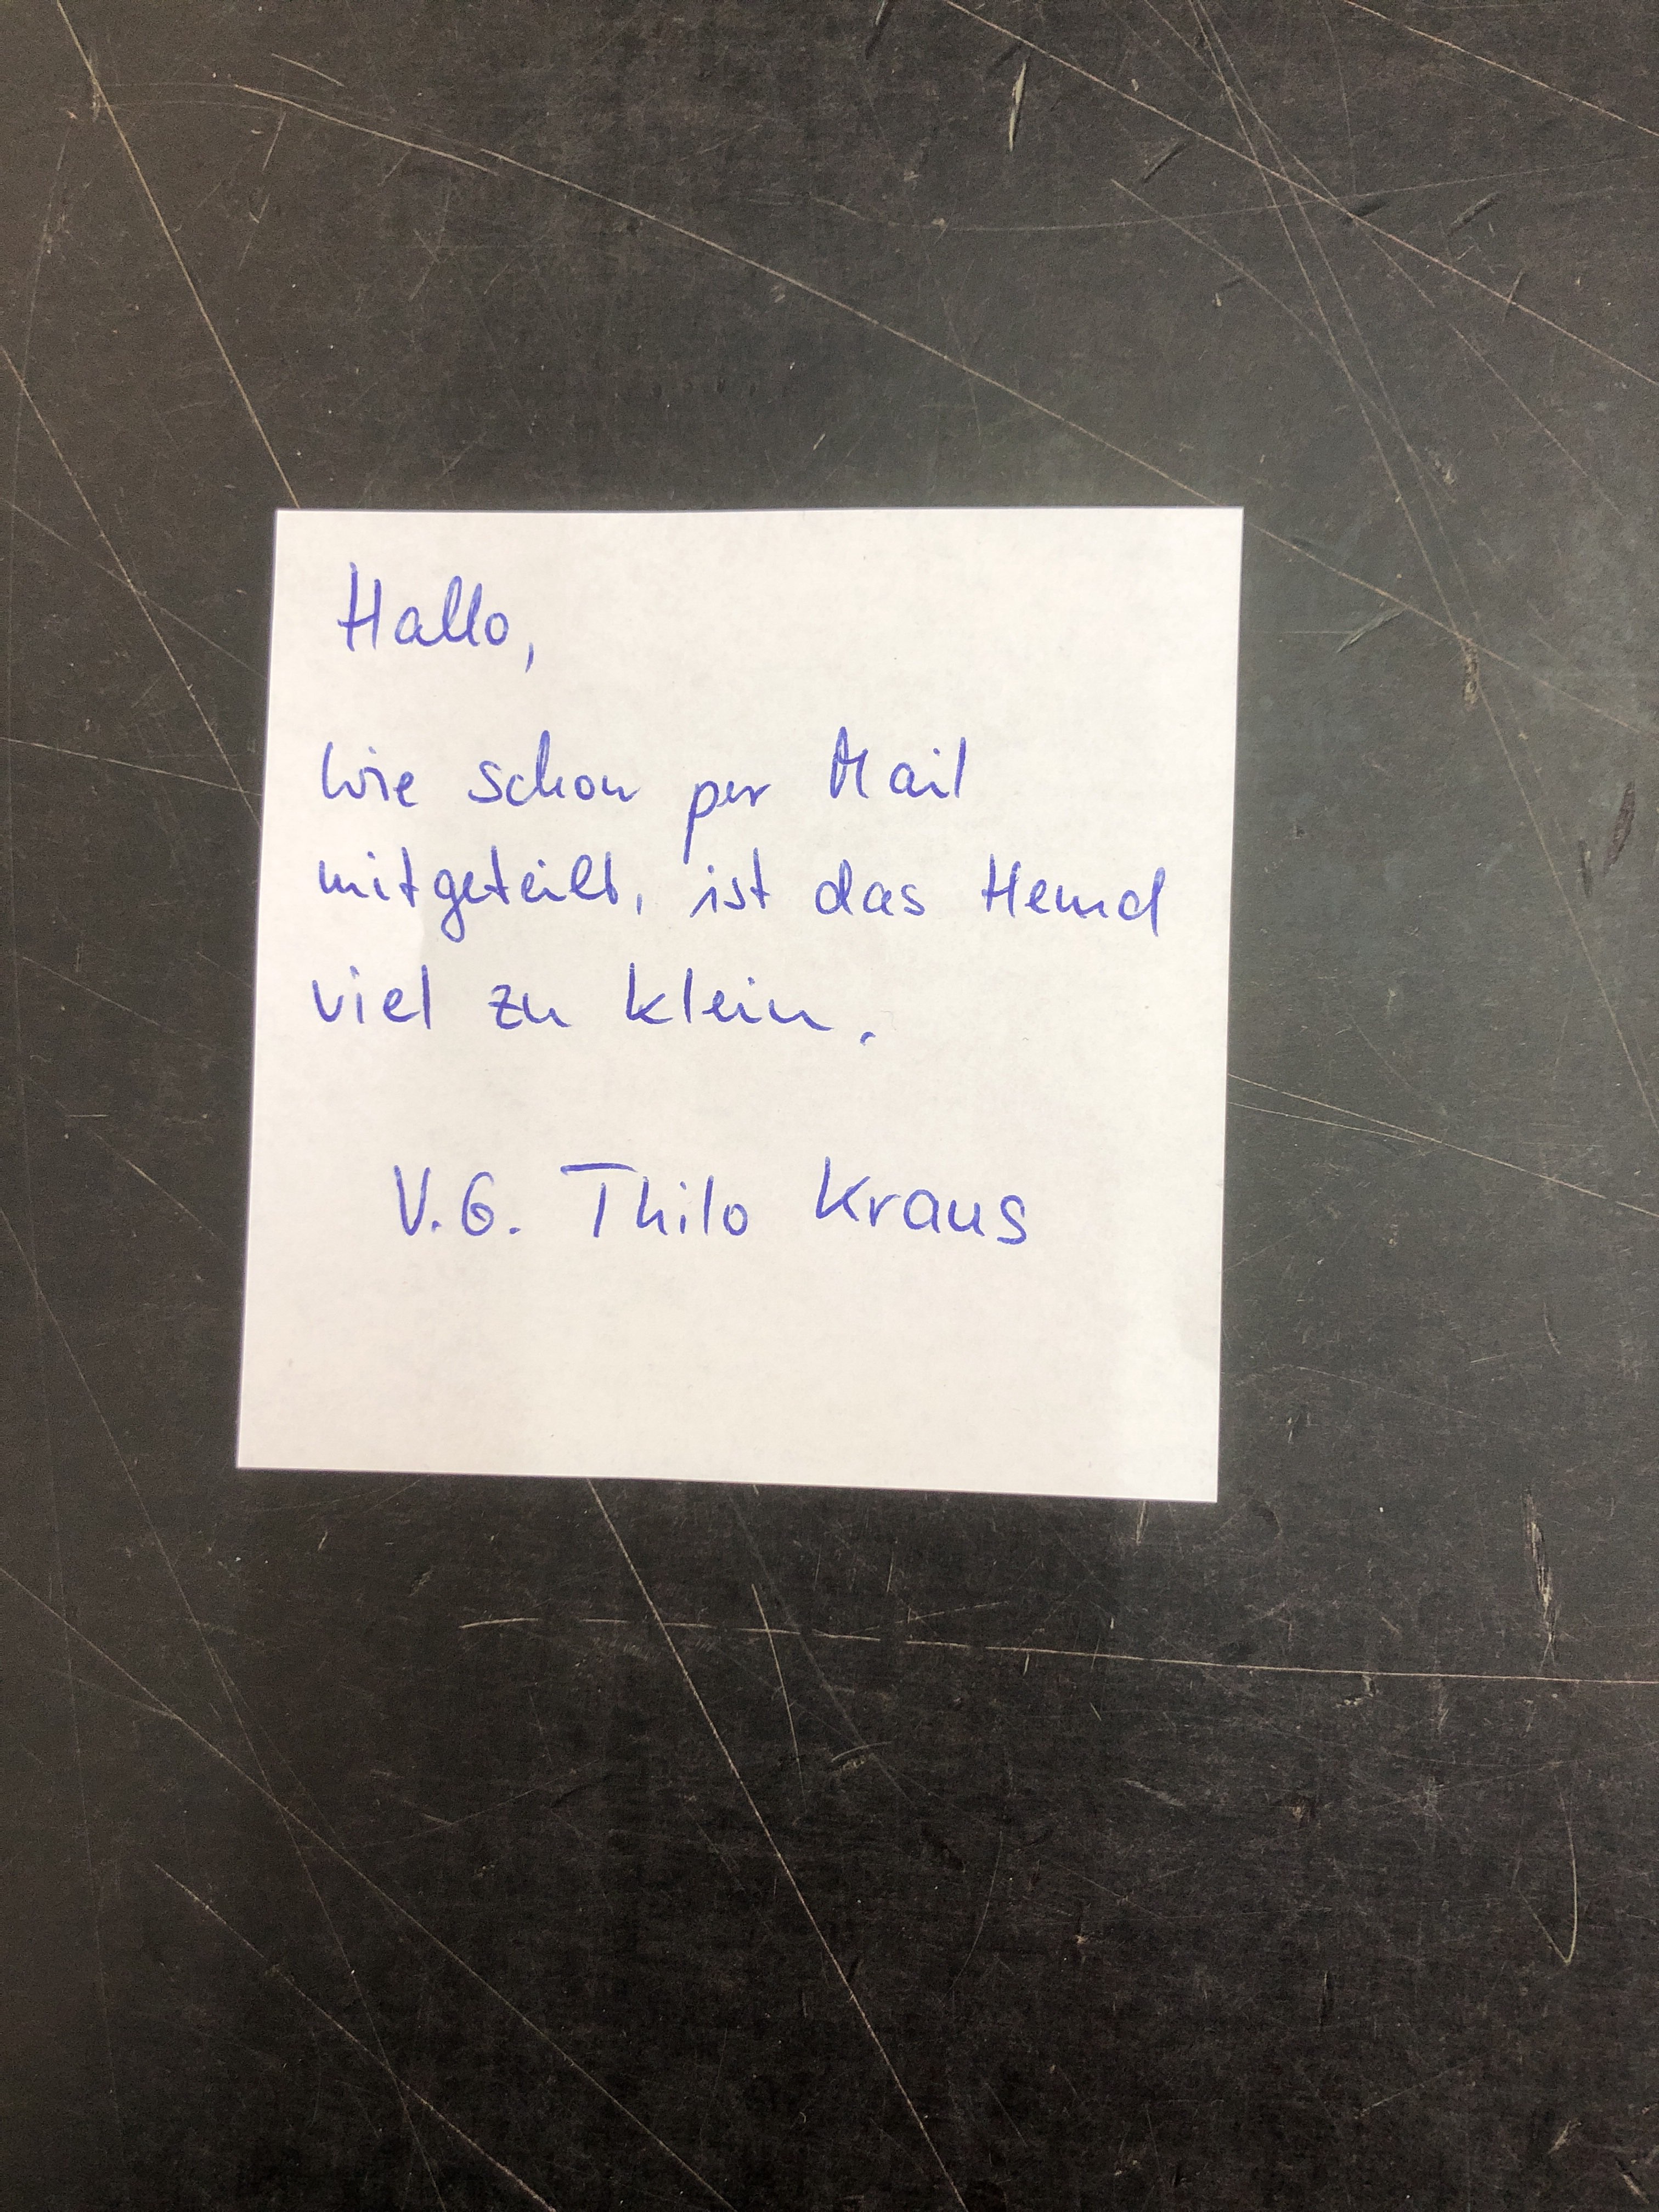 Hallo,
wie schon per Mail
mitgeteilt, ist das Hemd
viel zu klein.
V.G. Thilo Kraus